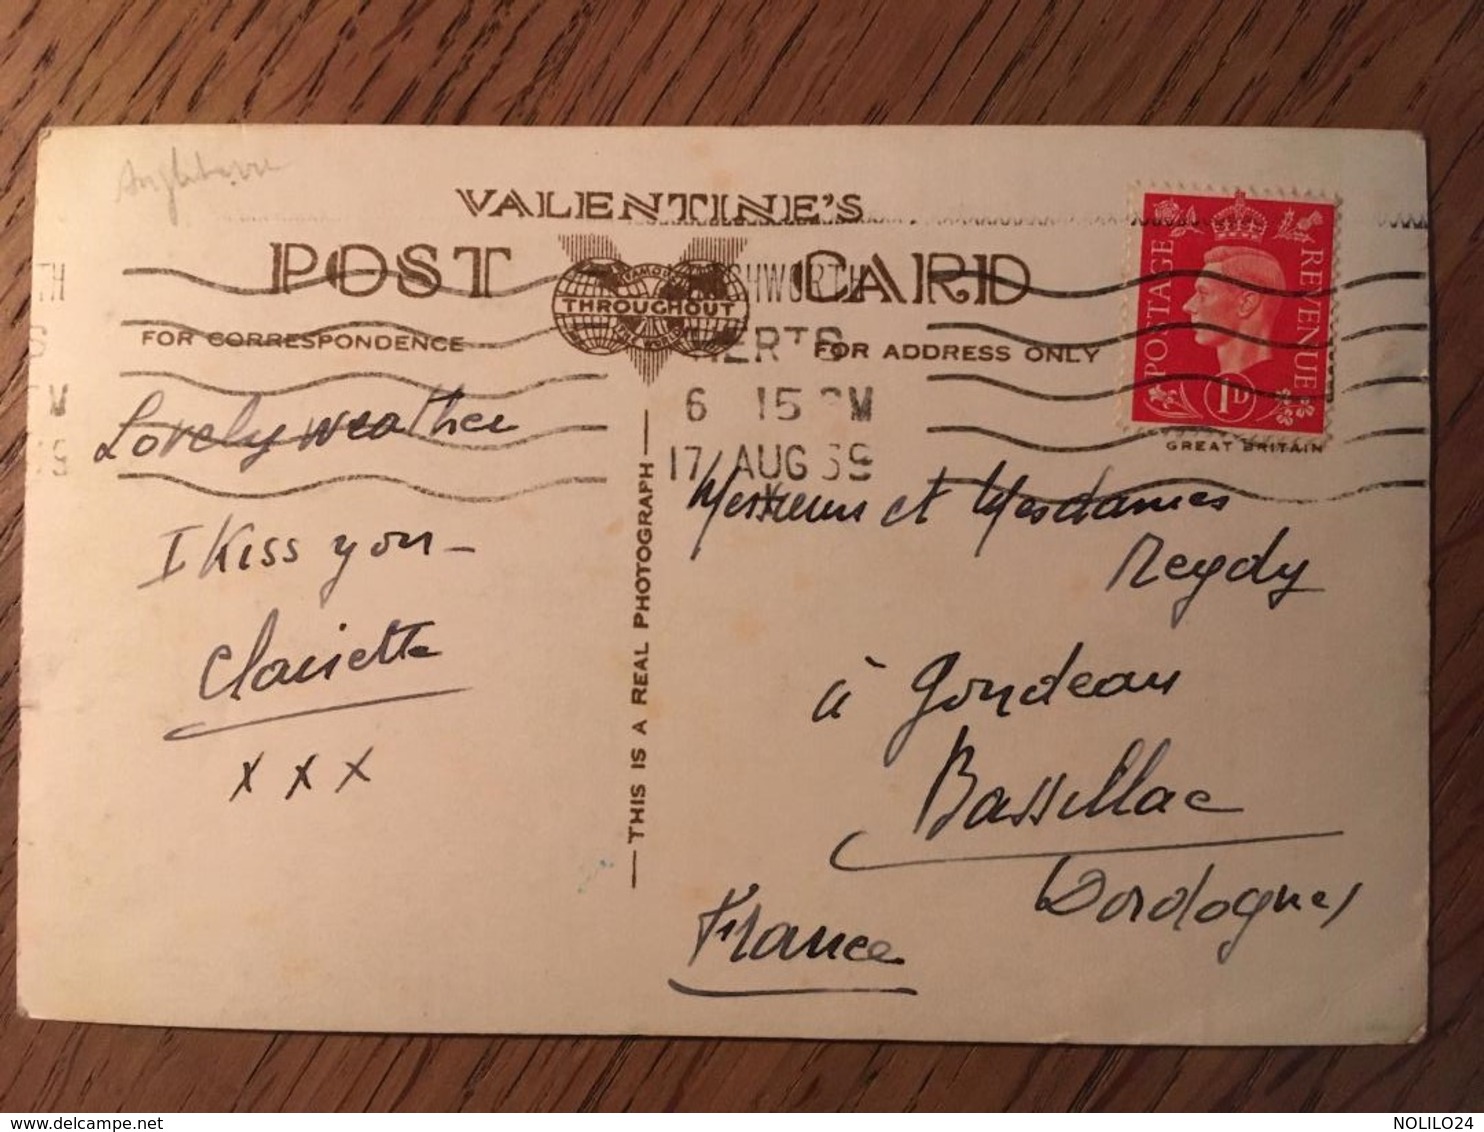 Angleterre
VALENTINE'S
POST CARD
FAMOUS
THROUGHOUT
THE WORLD
FOR CORRESPONDENCE
FOR ADDRESS ONLY
HERTS
6 15 PM
17 AUG 39
POSTAGE
REVENUE
1D
GREAT BRITAIN
Lovely weather
I Kiss you -
Clairette
x x x
THIS IS A REAL PHOTOGRAPH
Messieurs et Mesdames
Reydy
à Gondeau
Bassillac
Dordogne
France
NOLILO24